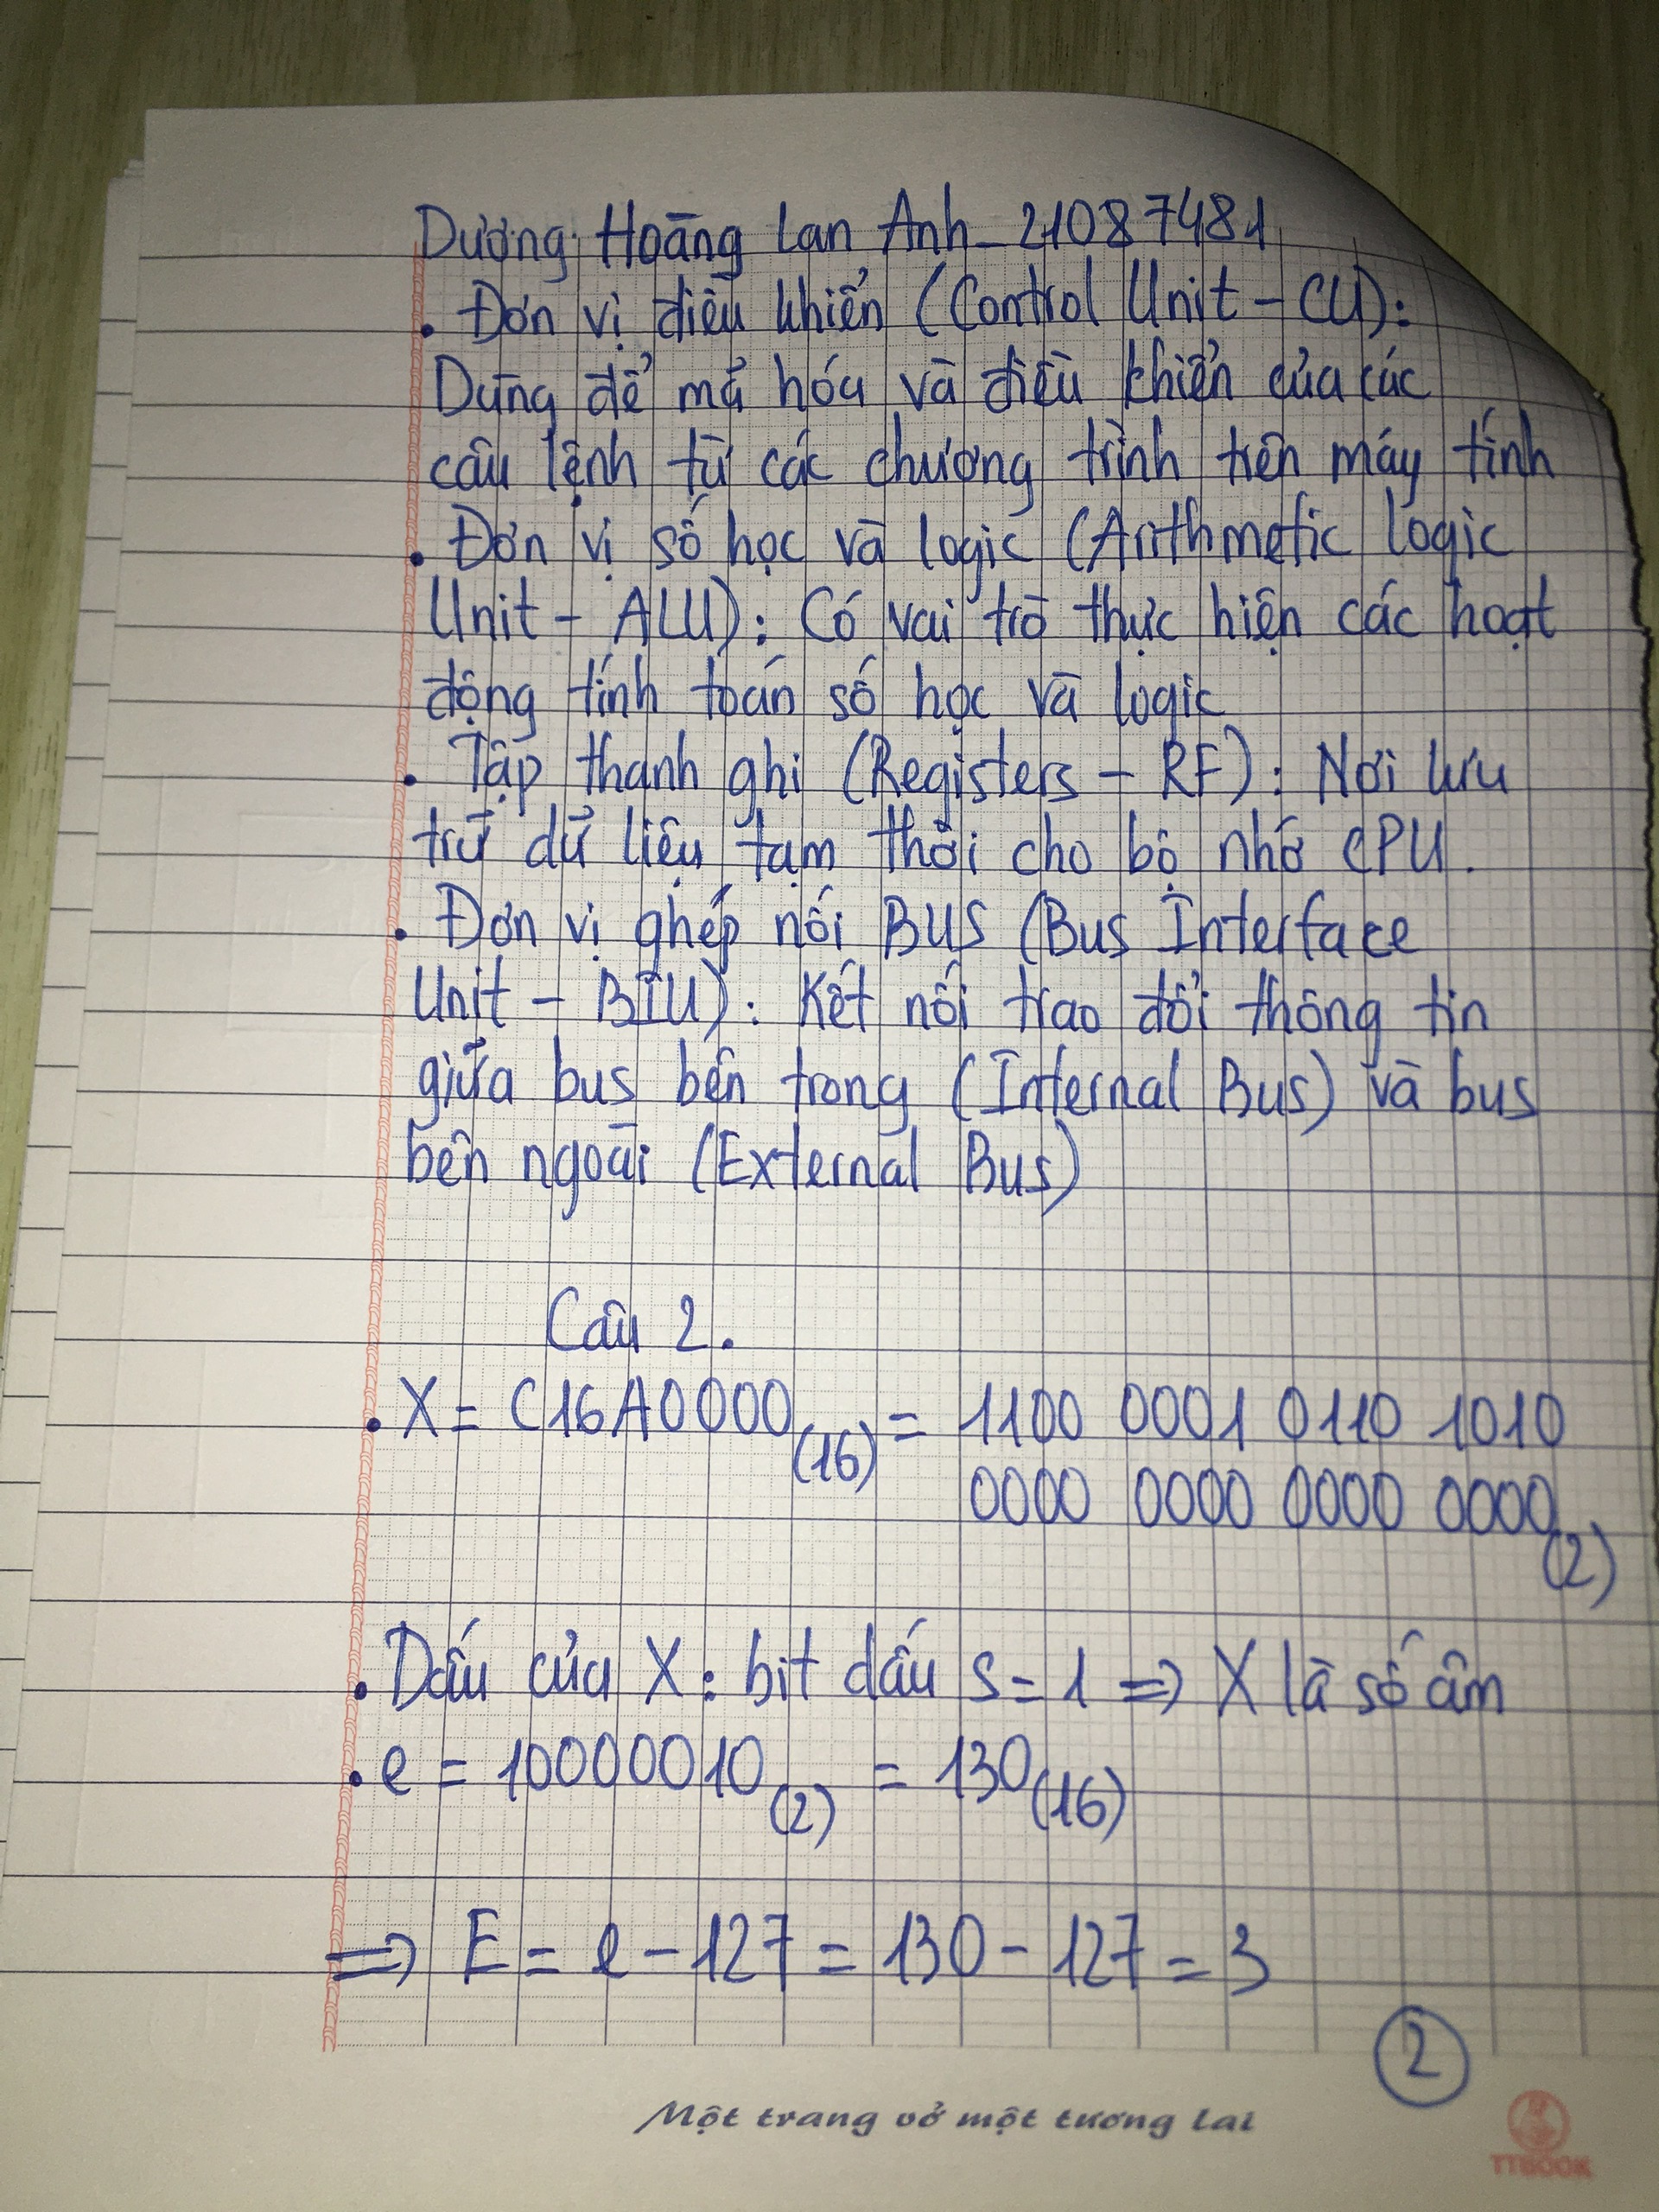 Dương Hoàng Lan Anh - 21087481
. Đơn vị điều khiển (Control Unit - CU):
Dùng để mã hóa và điều khiển của các
câu lệnh từ các chương trình trên máy tính
. Đơn vị số học và logic (Arithmetic Logic
Unit - ALU): Có vai trò thực hiện các hoạt
động tính toán số học và logic
. Tập thanh ghi (Registers - RF): Nơi lưu
trữ dữ liệu tạm thời cho bộ nhớ CPU.
. Đơn vị ghép nối BUS (Bus Interface
Unit - BIU): Kết nối trao đổi thông tin
giữa bus bên trong (Internal Bus) và bus
bên ngoài (External Bus)
Câu 2.
. X = C16A0000(16) = 1100 0001 0110 1010
0000 0000 0000 0000(2)
. Dấu của X: bit dấu S = 1 => X là số âm
. e = 10000010(2) = 130(16)
=> E = e - 127 = 130 - 127 = 3
2
Một trang vở một tương lai
TTBOOK